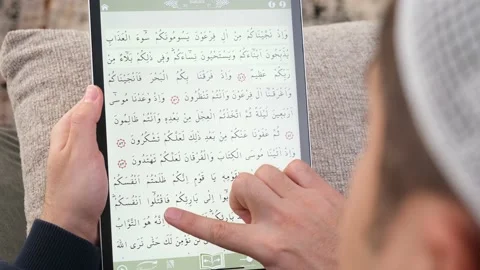 وَإِذْ نَجَّيْنَاكُم مِّنْ آلِ فِرْعَوْنَ يَسُومُونَكُمْ سُوءَ الْعَذَابِ
يُذَبِّحُونَ أَبْنَاءَكُمْ وَيَسْتَحْيُونَ نِسَاءَكُمْ وَفِي ذَٰلِكُم بَلَاءٌ مِّن
رَّبِّكُمْ عَظِيمٌ ٤٩ وَإِذْ فَرَقْنَا بِكُمُ الْبَحْرَ فَأَنجَيْنَاكُمْ
وَأَغْرَقْنَا آلَ فِرْعَوْنَ وَأَنتُمْ تَنظُرُونَ ٥٠ وَإِذْ وَاعَدْنَا مُوسَىٰ
أَرْبَعِينَ لَيْلَةً ثُمَّ اتَّخَذْتُمُ الْعِجْلَ مِن بَعْدِهِ وَأَنتُمْ ظَالِمُونَ
ثُمَّ عَفَوْنَا عَنكُم مِّن بَعْدِ ذَٰلِكَ لَعَلَّكُمْ تَشْكُرُونَ ٥٢
وَإِذْ آتَيْنَا مُوسَى الْكِتَابَ وَالْفُرْقَانَ لَعَلَّكُمْ تَهْتَدُونَ ٥٣
لِقَوْمِهِ يَا قَوْمِ إِنَّكُمْ ظَلَمْتُمْ أَنفُسَكُم
إِلَىٰ بَارِئِكُمْ فَاقْتُلُوا أَنفُسَكُمْ
بَارِئِكُمْ إِنَّهُ هُوَ التَّوَّابُ
لَن نُّؤْمِنَ لَكَ حَتَّىٰ نَرَى اللَّهَ